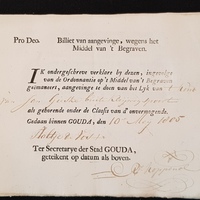 Pro Deo. Billiet van aangevinge, wegens het
Middel van 't Begraven.
IK ondergeschreve verklare by dezen, ingevolge
van de Ordonnantie op 't Middel van 't Begraven
geëmaneert, aangevinge te doen van het Lyk van
als gehorende onder de Classis van d' onvermogende.
Gedaan binnen GOUDA, den 10 Mey 1805
Ter Secretarye der Stad GOUDA,
getekent op datum als boven.